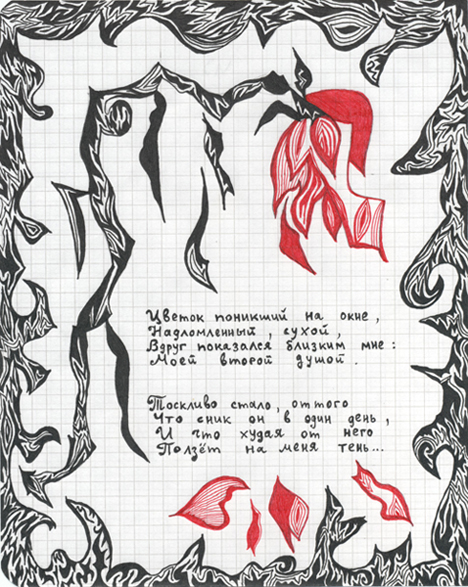 Цветок поникший на окне,
Надломленный, сухой,
Вдруг показался близким мне:
Моей второй душой.
Тоскливо стало, оттого
Что сник он в один день,
И что худая от него
Ползёт на меня тень...